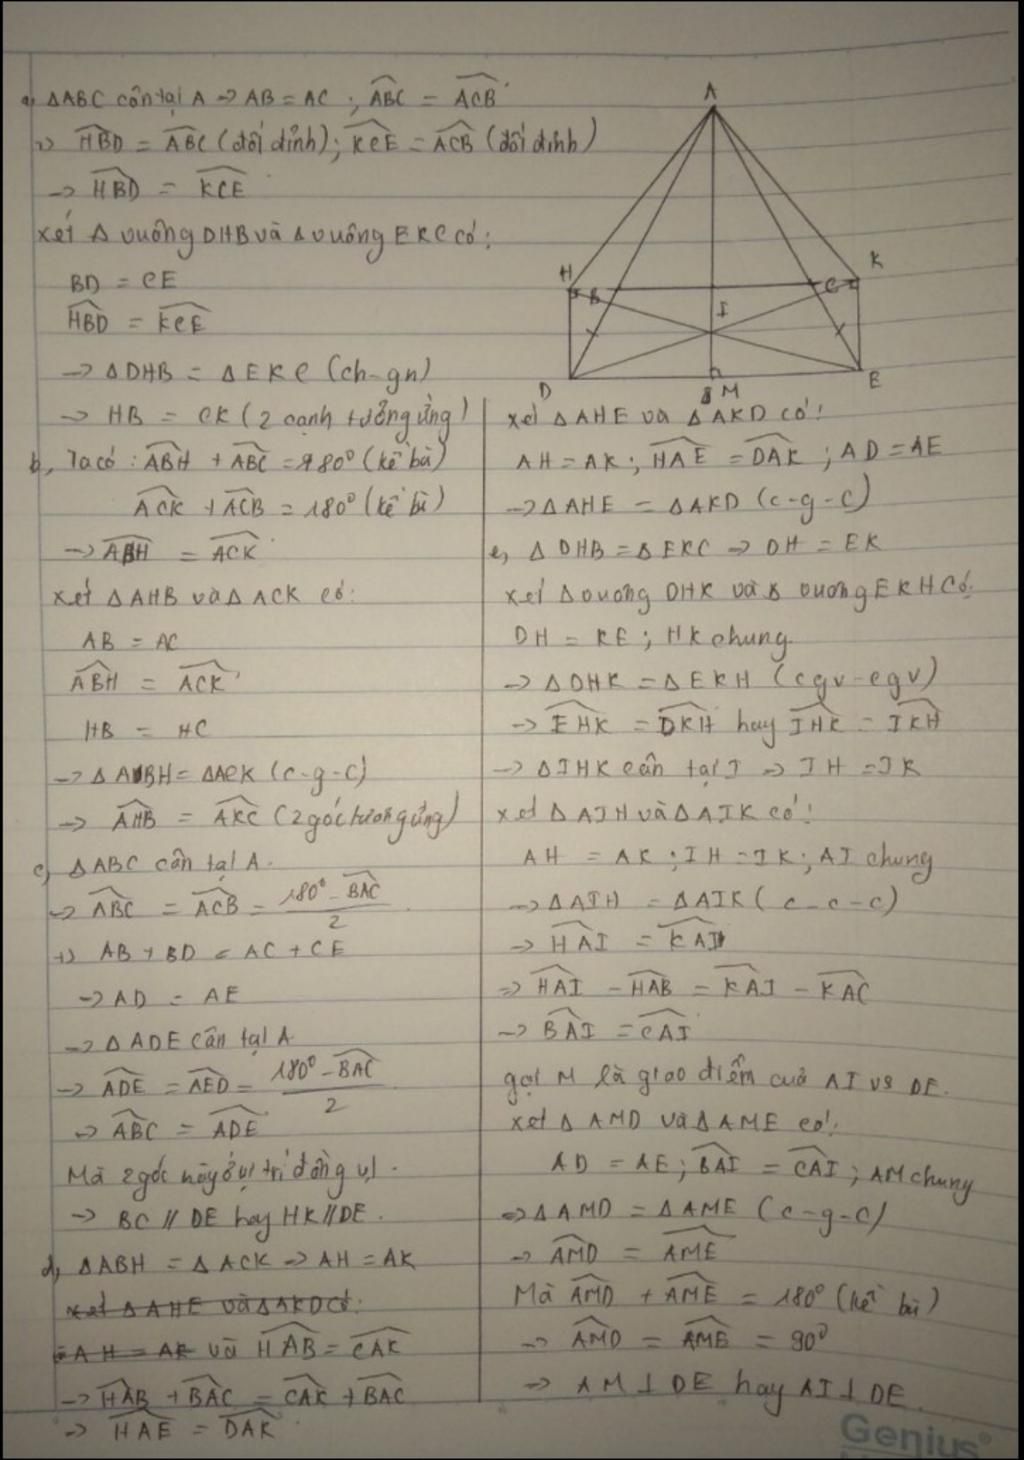 a, ΔABC cân tại A → AB = AC ; ABC = ACB
+) HBD = ABC (đối đỉnh) ; KCE = ACB (đối đỉnh)
→ HBD = KCE
xét Δ vuông DHB và Δ vuông EKC có :
BD = CE
HBD = KCE
→ ΔDHB = ΔEKC (ch-gn)
→ HB = CK (2 cạnh tương ứng)
b, Ta có : ABH + ABC = 180° (kề bù)
ACK + ACB = 180° (kề bù)
→ ABH = ACK
xét ΔAHB và ΔACK có :
AB = AC
ABH = ACK
HB = HC
→ ΔABH = ΔACK (c-g-c)
→ AHB = AKC (2 góc tương ứng)
c, ΔABC cân tại A.
→ ABC = ACB = 180° - BAC / 2
+) AB + BD = AC + CE
→ AD = AE
→ ΔADE cân tại A
→ ADE = AED = 180° - BAC / 2
→ ABC = ADE
Mà 2 góc này ở vị trí đồng vị.
→ BC // DE hay HK // DE.
d, ΔABH = ΔACK → AH = AK
xét ΔAHE và ΔAKD có:
AH = AK và HAB = CAK
→ HAB + BAC = CAK + BAC
→ HAE = DAK
A
H
B
C
K
I
D
M
E
xét ΔAHE và ΔAKD có :
AH = AK ; HAE = DAK ; AD = AE
→ ΔAHE = ΔAKD (c-g-c)
e, ΔDHB = ΔEKC → DH = EK
xét Δ vuông DHK và Δ vuông EKH có:
DH = KE ; HK chung
→ ΔDHK = ΔEKH (cgv-cgv)
→ EHK = DKH hay IHK = IKH
→ ΔIHK cân tại I → IH = IK
xét ΔAIH và ΔAIK có :
AH = AK ; IH = IK ; AI chung
→ ΔAIH = ΔAIK (c-c-c)
→ HAI = KAI
→ HAI - HAB = KAI - KAC
→ BAI = CAI
gọi M là giao điểm của AI vs DE.
xét ΔAMD và ΔAME có :
AD = AE ; BAI = CAI ; AM chung
→ ΔAMD = ΔAME (c-g-c)
→ AMD = AME
Mà AMD + AME = 180° (kề bù)
→ AMD = AME = 90°
→ AM ⊥ DE hay AI ⊥ DE.
Genius